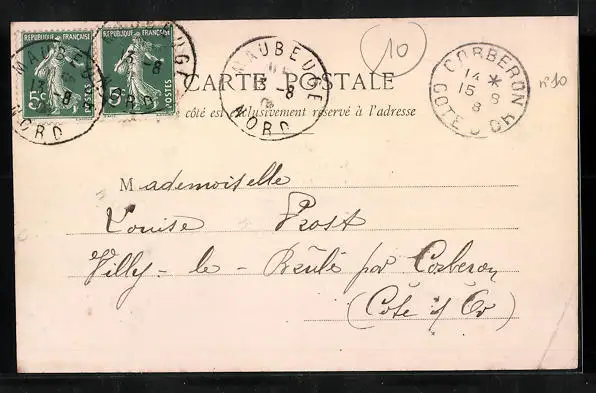 REPUBLIQUE FRANÇAISE REPUBLIQUE FRANÇAISE
5c POSTES 5c POSTES
MAUBEUGE
NORD
MAUBEUGE
NORD
MAUBEUGE
8
NORD
10
CORBERON
14 *
15 8
8
COTE D'OR
n°10
CARTE POSTALE
côté est exclusivement réservé à l'adresse
Mademoiselle
Louise Prost
Villy-le-Brûlé par Corberon
(Côte d'Or)